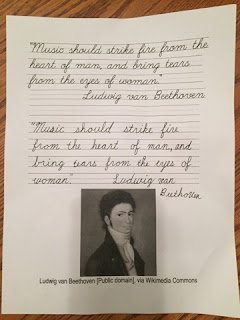 "Music should strike fire from the
heart of man, and bring tears
from the eyes of woman."
Ludwig van Beethoven
"Music should strike fire
from the heart of man, and
bring tears from the eyes of
woman." Ludwig van
Beethoven
Ludwig van Beethoven [Public domain], via Wikimedia Commons